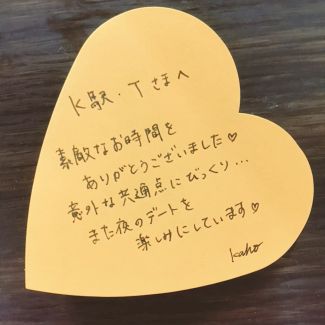 K駅・Tさまへ
素敵なお時間を
ありがとうございました♡
意外な共通点にびっくり...
また夜のデートを
楽しみにしています♡
kaho